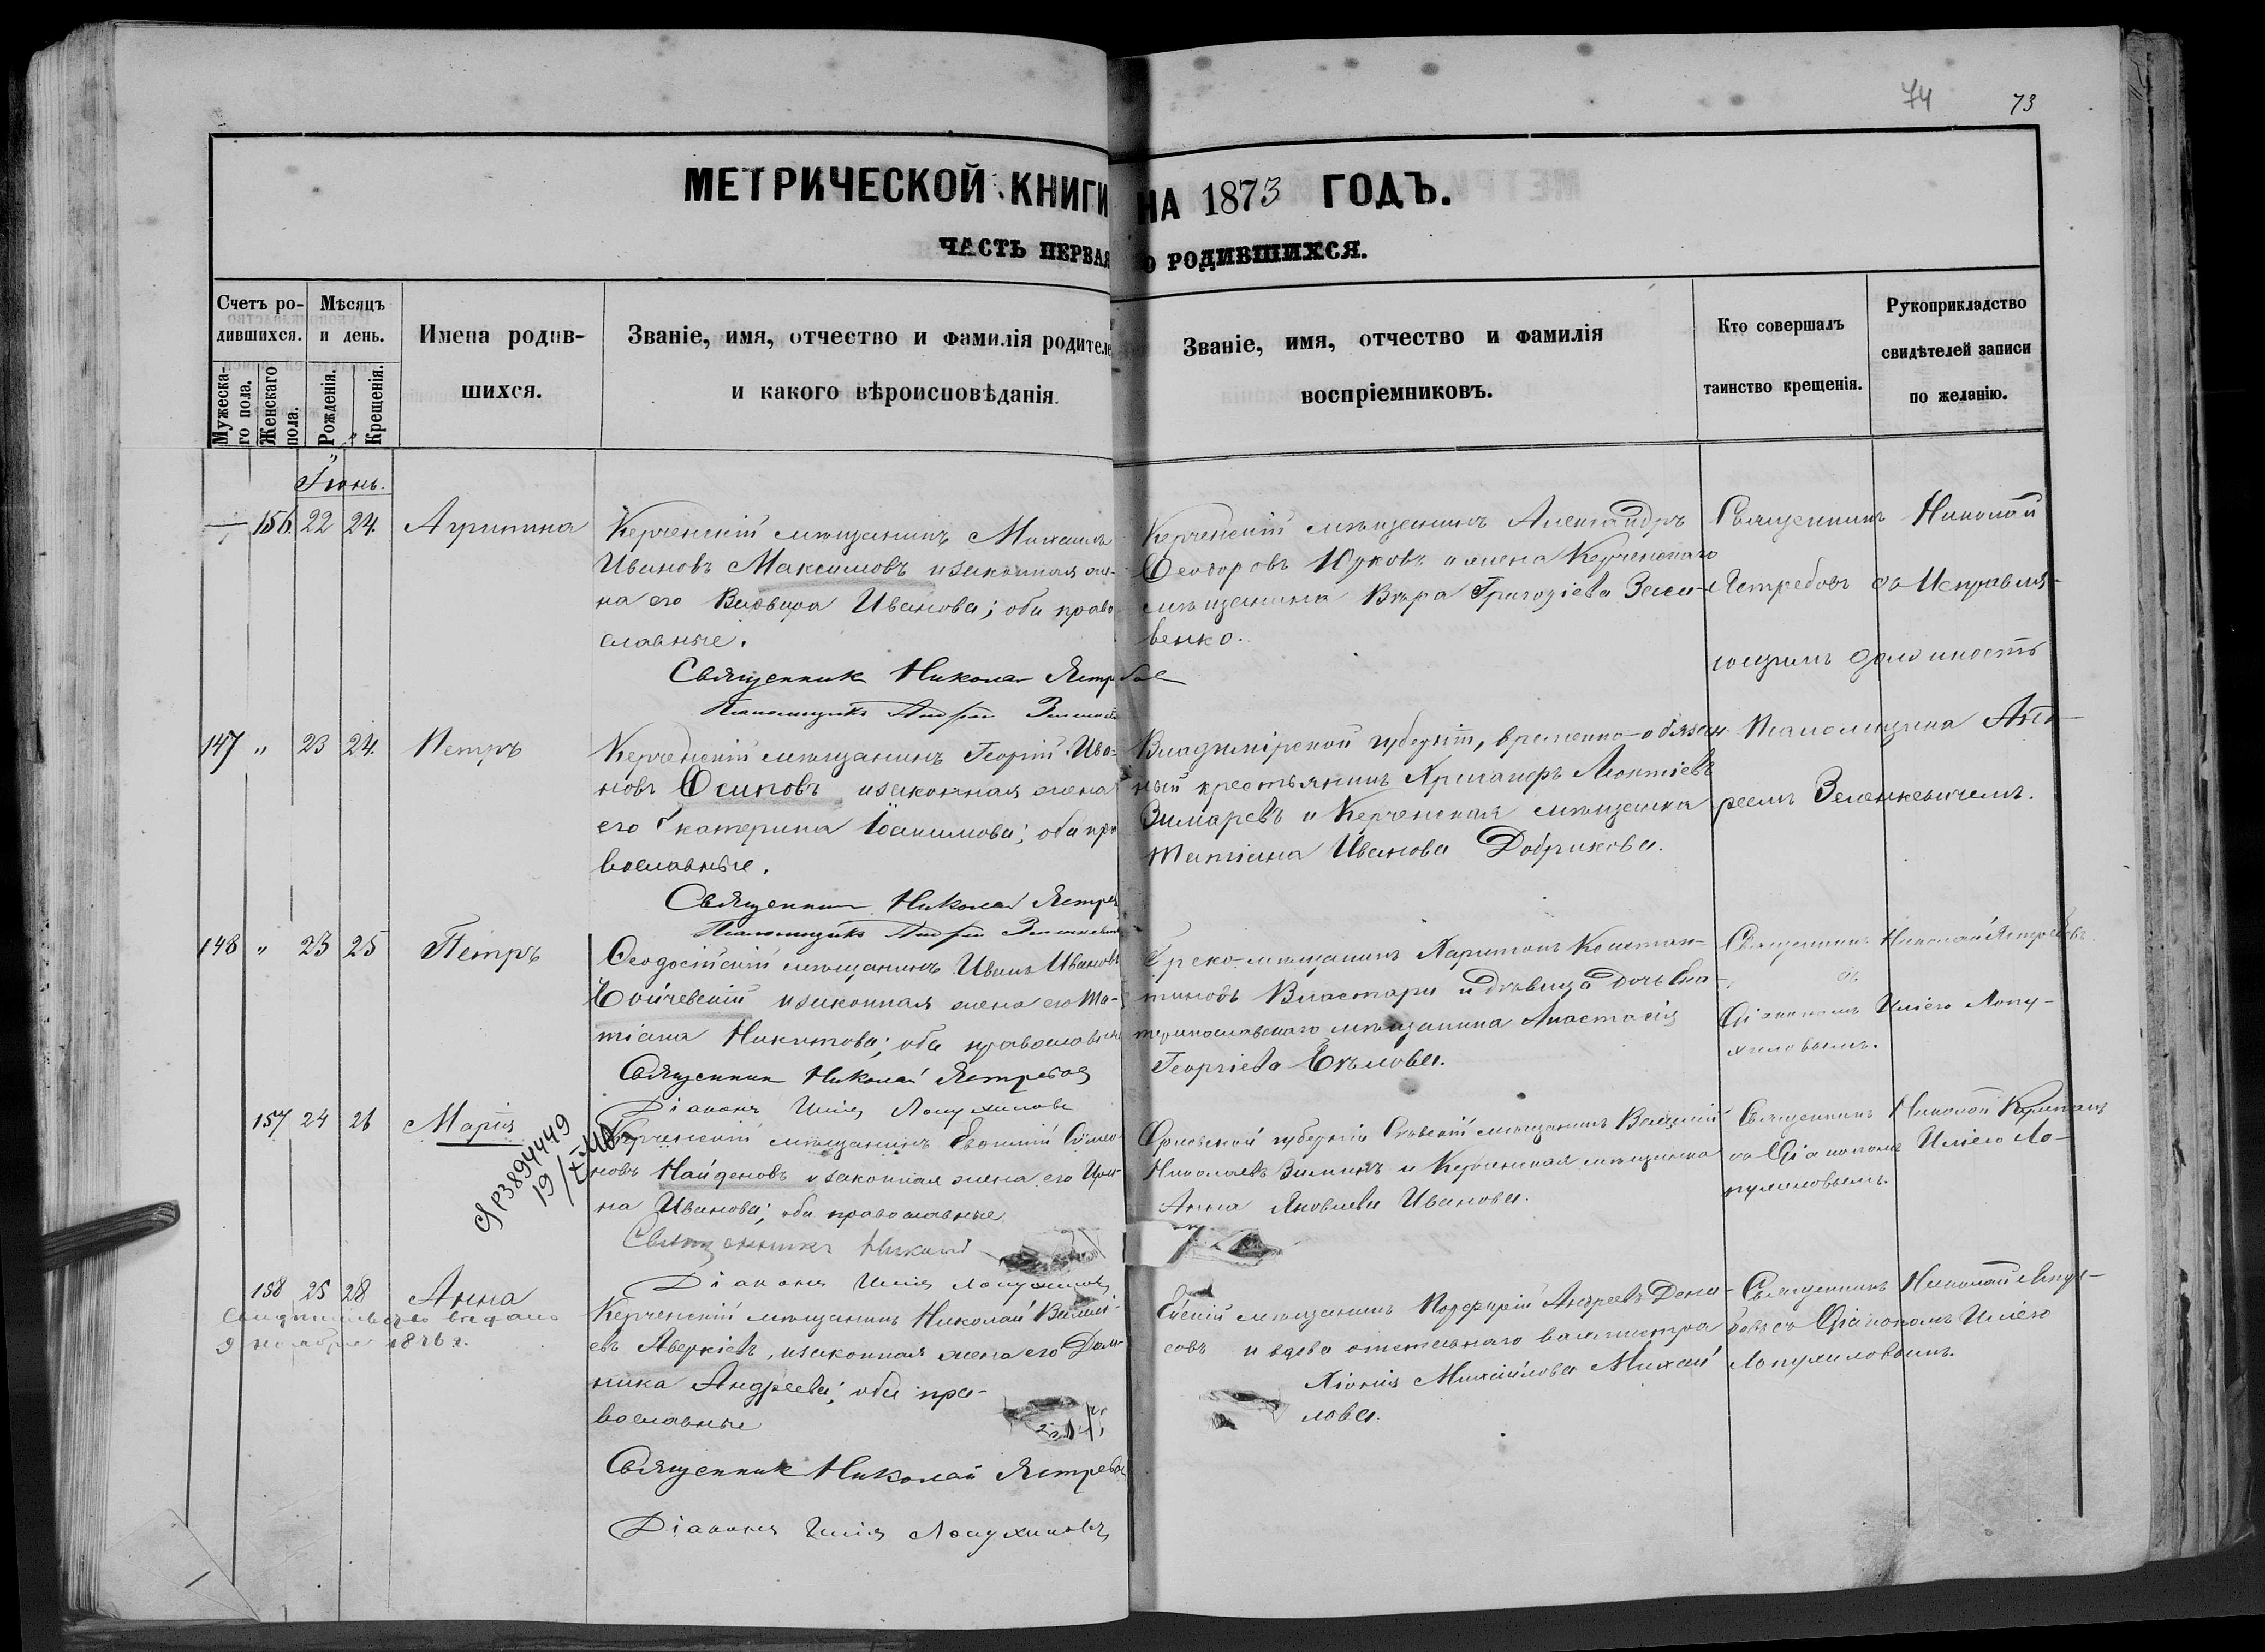 74
73
МЕТРИЧЕСКОЙ КНИГИ НА 1873 ГОДЪ.
ЧАСТЬ ПЕРВАЯ О РОДИВШИХСЯ.
Счетъ ро-
дившихся.
Мужеска-
го пола.
Женскаго
пола.
Мѣсяцъ
и день.
Рожденія.
Крещенія.
Имена родив-
шихся.
Званіе, имя, отчество и фамилія родителе
и какого вѣроисповѣданія.
Званіе, имя, отчество и фамилія
воспріемниковъ.
Кто совершалъ
таинство крещенія.
Рукоприкладство
свидѣтелей записи
по желанію.
Іюнь.
156 22 24 Агрипина
Керченскій мѣщанинъ Михаилъ
Ивановъ Максимовъ и законная же-
на его Иванова; оба право-
славные.
Священник Николай Ястребов
Псаломщикъ Андрей
Керченскій мѣщанинъ Александръ
Ѳеодоровъ Юрковъ и жена Керченскаго
мѣщанина Вѣра Григоріева
венко.
Священникъ Николай
Ястребовъ съ Исправля-
ющимъ должность
Псаломщика Анд-
реемъ Зеленкевичемъ.
147 " 23 24 Петръ
Керченскій мѣщанинъ Георгій Ива-
новъ Осиповъ и законная жена
его Екатерина Іоакимова; оба пра
вославные.
Священник Николай Ястреб
Псаломщикъ Андрей
Владимірской губерніи, временно-обязан
ный крестьянинъ Леонтіевъ
Зимаревъ и Керченская мѣщанка
Татіана Иванова Добрикова.
148 " 23 25 Петръ
Ѳеодосійскій мѣщанинъ Иванъ Ивановъ
Бойчевскій и законная жена его Та-
тіана Никитова; оба православные
Священник Николай Ястребов
Діаконъ Илія Лопухиновъ
Греко-мѣщанинъ Харитонъ Констан-
тиновъ Властари и дѣвица дочь Ека-
теринославскаго мѣщанина Анастасія
Георгіева Бѣлова.
Священникъ Николай Ястребовъ
съ
Діакономъ Иліею Лопу-
хиновымъ.
157 24 26 Марія
P3894449
19
Керченскій мѣщанинъ Евгеній Симео-
новъ Найденовъ и законная жена его Ири-
на Иванова; оба православные
Священникъ Николай
Діаконъ Илія Лопухиновъ
Орловской губерніи Сѣвскій мѣщанинъ Василій
Николаевъ Зиминъ и Керченская мѣщанка
Анна Яковлева Иванова.
Священникъ Николай
съ Діакономъ Иліею Ло-
пухиновымъ.
158 25 28 Анна
Свидѣтельство выдано
9 ноября 1876 г.
Керченскій мѣщанинъ Николай Василі-
евъ Аверкіевъ, и законная жена его Дом-
ника Андреева; оба пра-
вославные
Священник Николай Ястребов
Діаконъ Илія Лопухиновъ
Ейскій мѣщанинъ Порфирій Андреевъ Дени-
совъ и вдова отставнаго вахмистра
Хіонія Михайлова Михай
лова.
Священникъ Николай Ястре-
бовъ съ Діакономъ Иліею
Лопухиновымъ.